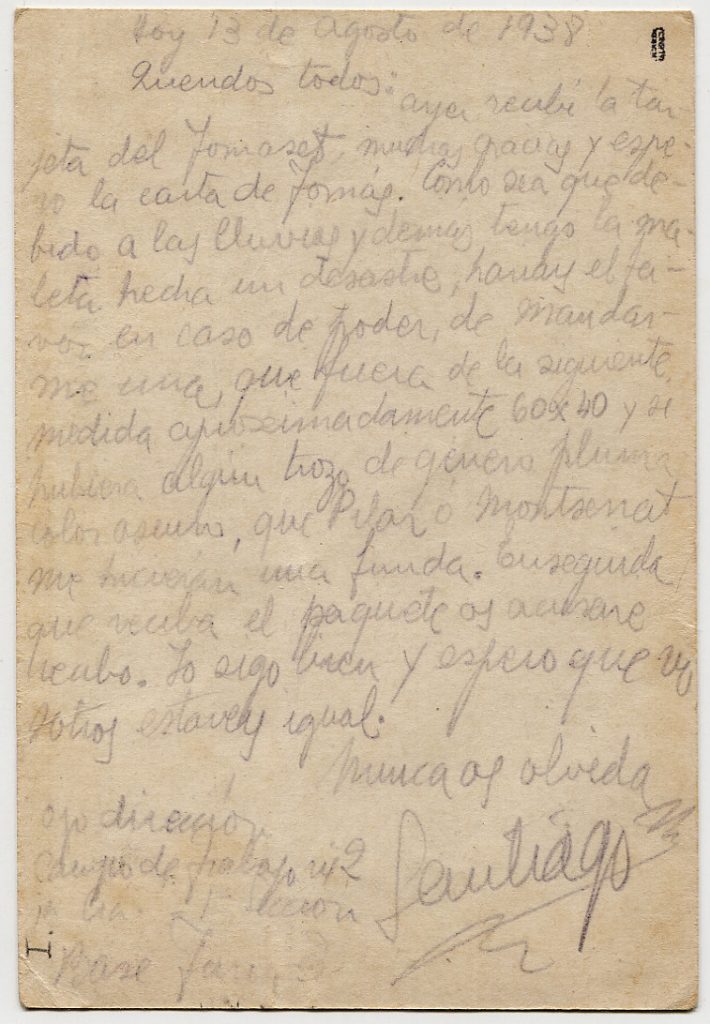 Hoy 13 de Agosto de 1938
Queridos todos: ayer recibí la tar-
jeta del Tomaset, muchas gracias y espe-
ro la carta de Tomás. Como sea que de-
bido a las lluvias y demas tengo la ma-
leta hecha un desastre, harias el fa-
vor en caso de poder, de mandar-
me una, que fuera de la siguiente
medida aproximadamente 60x40 y si
hubiera algún trozo de género pluma
color oscuro, que Pilar o Montserrat
me hicieran una funda. Enseguida
que reciba el paquete os acusaré
recibo. Yo sigo bien y espero que vo
sotros estareis igual.
Nunca os olvida
Santiago
ojo dirección
Campo de trabajo nº 2
sección
Base
I.